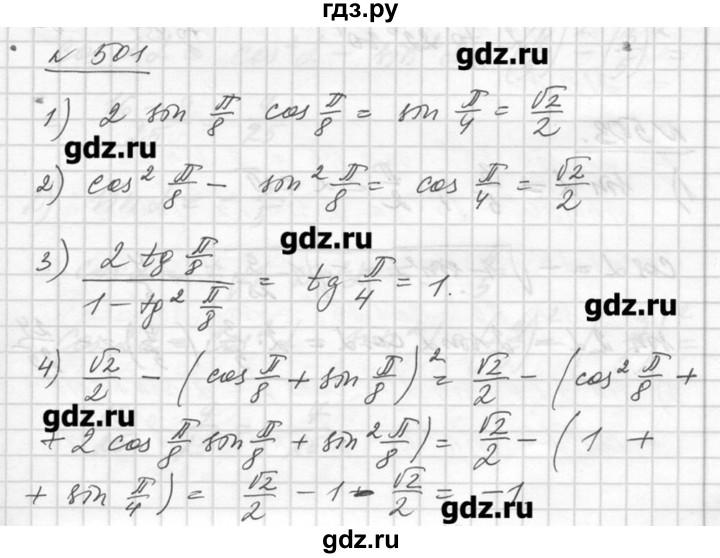 гдз.ру
№ 501
gdz.ru
1) 2 sin π/8 cos π/8 = sin π/4 = √2/2
gdz.ru
2) cos² π/8 - sin² π/8 = cos π/4 = √2/2
gdz.ru
3) (2 tg π/8)/(1 - tg² π/8) = tg π/4 = 1.
gdz.ru
4) √2/2 - (cos π/8 + sin π/8)² = √2/2 - (cos² π/8 +
gdz.ru
+ 2 cos π/8 sin π/8 + sin² π/8) = √2/2 - (1 +
+ sin π/4) = √2/2 - 1 - √2/2 = -1
gdz.ru
гдз.ру